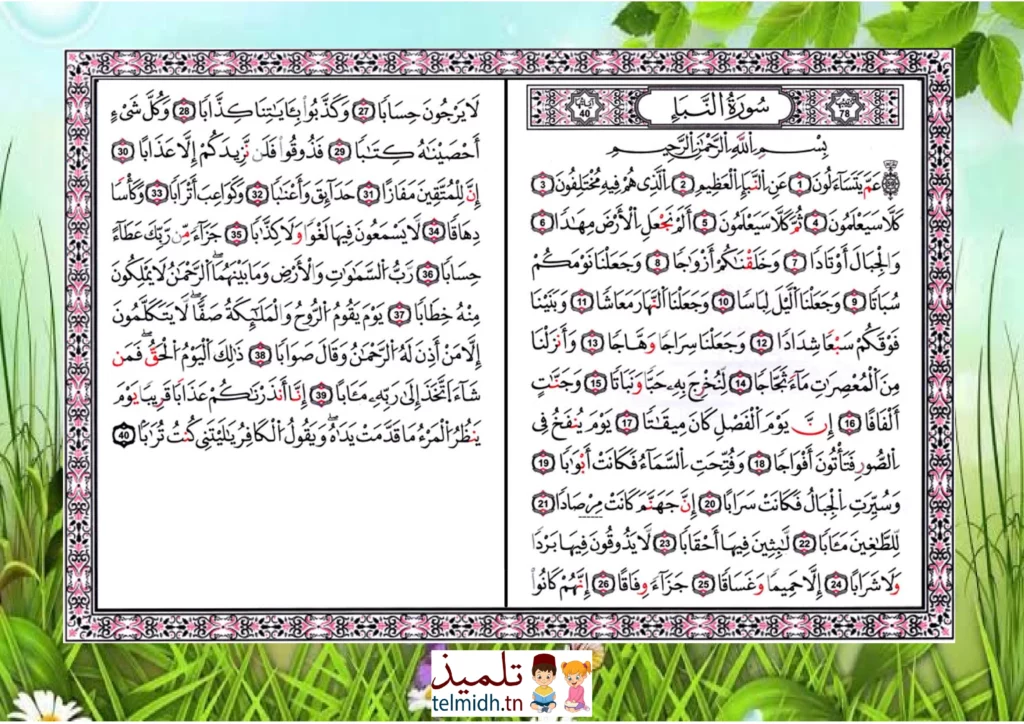 سُورَةُ النَّبَإِ
78
40
بِسْمِ اللَّهِ الرَّحْمَٰنِ الرَّحِيمِ
عَمَّ يَتَسَآءَلُونَ 1 عَنِ اِلنَّبَإِ اِلْعَظِيمِ 2 اِلَّذِي هُمْ فِيهِ مُخْتَلِفُونَ 3
كَلَّا سَيَعْلَمُونَ 4 ثُمَّ كَلَّا سَيَعْلَمُونَ 5 أَلَمْ نَجْعَلِ اِلْأَرْضَ مِهَٰدًا 6
وَالْجِبَالَ أَوْتَادًا 7 وَخَلَقْنَٰكُمْ أَزْوَٰجًا 8 وَجَعَلْنَا نَوْمَكُمْ
سُبَاتًا 9 وَجَعَلْنَا اَلَّيْلَ لِبَاسًا 10 وَجَعَلْنَا اَلنَّهَارَ مَعَاشًا 11 وَبَنَيْنَا
فَوْقَكُمْ سَبْعًا شِدَادًا 12 وَجَعَلْنَا سِرَاجًا وَهَّاجًا 13 وَأَنزَلْنَا
مِنَ اَلْمُعْصِرَٰتِ مَآءً ثَجَّاجًا 14 لِّنُخْرِجَ بِهِ حَبًّا وَنَبَاتًا 15 وَجَنَّٰتٍ
أَلْفَافًا 16 إِنَّ يَوْمَ اَلْفَصْلِ كَانَ مِيقَٰتًا 17 يَوْمَ يُنفَخُ فِي
اِلصُّورِ فَتَأْتُونَ أَفْوَاجًا 18 وَفُتِّحَتِ اِلسَّمَآءُ فَكَانَتْ أَبْوَٰبًا 19
وَسُيِّرَتِ اِلْجِبَالُ فَكَانَتْ سَرَابًا 20 إِنَّ جَهَنَّمَ كَانَتْ مِرْصَادًا 21
لِّلطَّٰغِينَ مَـَٔابًا 22 لَّٰبِثِينَ فِيهَا أَحْقَابًا 23 لَّا يَذُوقُونَ فِيهَا بَرْدًا
وَلَا شَرَابًا 24 إِلَّا حَمِيمًا وَغَسَاقًا 25 جَزَآءً وِفَاقًا 26 إِنَّهُمْ كَانُوا
لَا يَرْجُونَ حِسَابًا 27 وَكَذَّبُوا بِـَٔايَٰتِنَا كِذَّابًا 28 وَكُلَّ شَيْءٍ
أَحْصَيْنَٰهُ كِتَٰبًا 29 فَذُوقُوا فَلَن نَّزِيدَكُمْ إِلَّا عَذَابًا 30
إِنَّ لِلْمُتَّقِينَ مَفَازًا 31 حَدَآئِقَ وَأَعْنَٰبًا 32 وَكَوَاعِبَ أَتْرَابًا 33 وَكَأْسًا
دِهَاقًا 34 لَّا يَسْمَعُونَ فِيهَا لَغْوًا وَلَا كِذَّٰبًا 35 جَزَآءً مِّن رَّبِّكَ عَطَآءً
حِسَابًا 36 رَبُّ السَّمَٰوَٰتِ وَالْأَرْضِ وَمَا بَيْنَهُمَا اَلرَّحْمَٰنُ لَا يَمْلِكُونَ
مِنْهُ خِطَابًا 37 يَوْمَ يَقُومُ الرُّوحُ وَالْمَلَٰٓئِكَةُ صَفًّا لَّا يَتَكَلَّمُونَ
إِلَّا مَنْ أَذِنَ لَهُ الرَّحْمَٰنُ وَقَالَ صَوَابًا 38 ذَٰلِكَ الْيَوْمُ الْحَقُّ فَمَن
شَآءَ اَتَّخَذَ إِلَىٰ رَبِّهِ مَـَٔابًا 39 إِنَّا أَنذَرْنَٰكُمْ عَذَابًا قَرِيبًا يَوْمَ
يَنظُرُ الْمَرْءُ مَا قَدَّمَتْ يَدَٰهُ وَيَقُولُ الْكَافِرُ يَٰلَيْتَنِي كُنتُ تُرَٰبًا 40
تلميذ
telmidh.tn